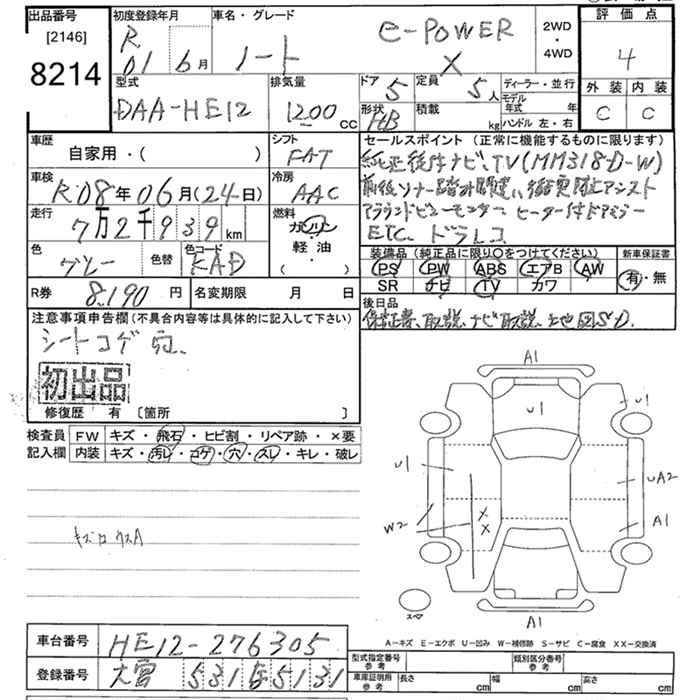 出品番号 初度登録年月 車名・グレード 評価点
[2146] R 01 6月 ノート e-POWER X 2WD・4WD 4
8214
外装 内装
C C
型式 排気量 ドア 5 定員 5人 ディーラー・並行
DAA-HE12 1200cc 形状 HB 積載 kg モデル年式 年
ハンドル 左・右
車歴 シフト セールスポイント (正常に機能するものに限ります)
自家用・( ) FAT 純正後付ナビ、TV(MM318D-W)
車検 冷房 前後ソナー踏み間違い衝突防止アシスト
R08年06月(24日) AAC アラウンドビューモニター、ヒーター付ドアミラー
走行 燃料 ETC、ドラレコ
7万2千939km ガソリン
軽・油
・( )
色 グレー 色替 色コード KAD
装備品 (純正品に限り○をつけてください) 新車保証書
PS PW ABS エアB AW 有・無
SR ナビ TV カワ
R券 8,190円 名変期限 月 日
後日品
保証書、取説、ナビ取説、地図SD.
注意事項申告欄(不具合内容等は具体的に記入して下さい)
シートコゲ穴、
初出品
修復歴 有 [箇所 ]
検査員 FW キズ・飛石・ヒビ割・リペア跡・×要
記入欄 内装 キズ・汚レ・コゲ・穴・スレ・キレ・破レ
A1
U1 U1
U1 UA2
W2 × × A1
A1
スペア
A-キズ E-エクボ U-凹み W-補修跡 S-サビ C-腐食 XX-交換済
車台番号 HE12-276305
登録番号 大宮 531 5131
型式指定番号 参考 類別区分番号 参考
車庫証明用 参考 長さ cm 幅 cm 高さ cm